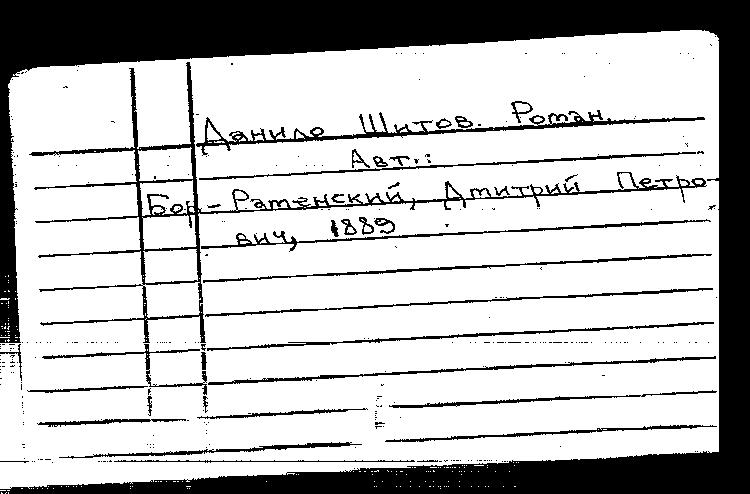 Данило Шитов. Роман.
Авт.:
Бор-Раменский, Дмитрий Петро-
вич, 1889